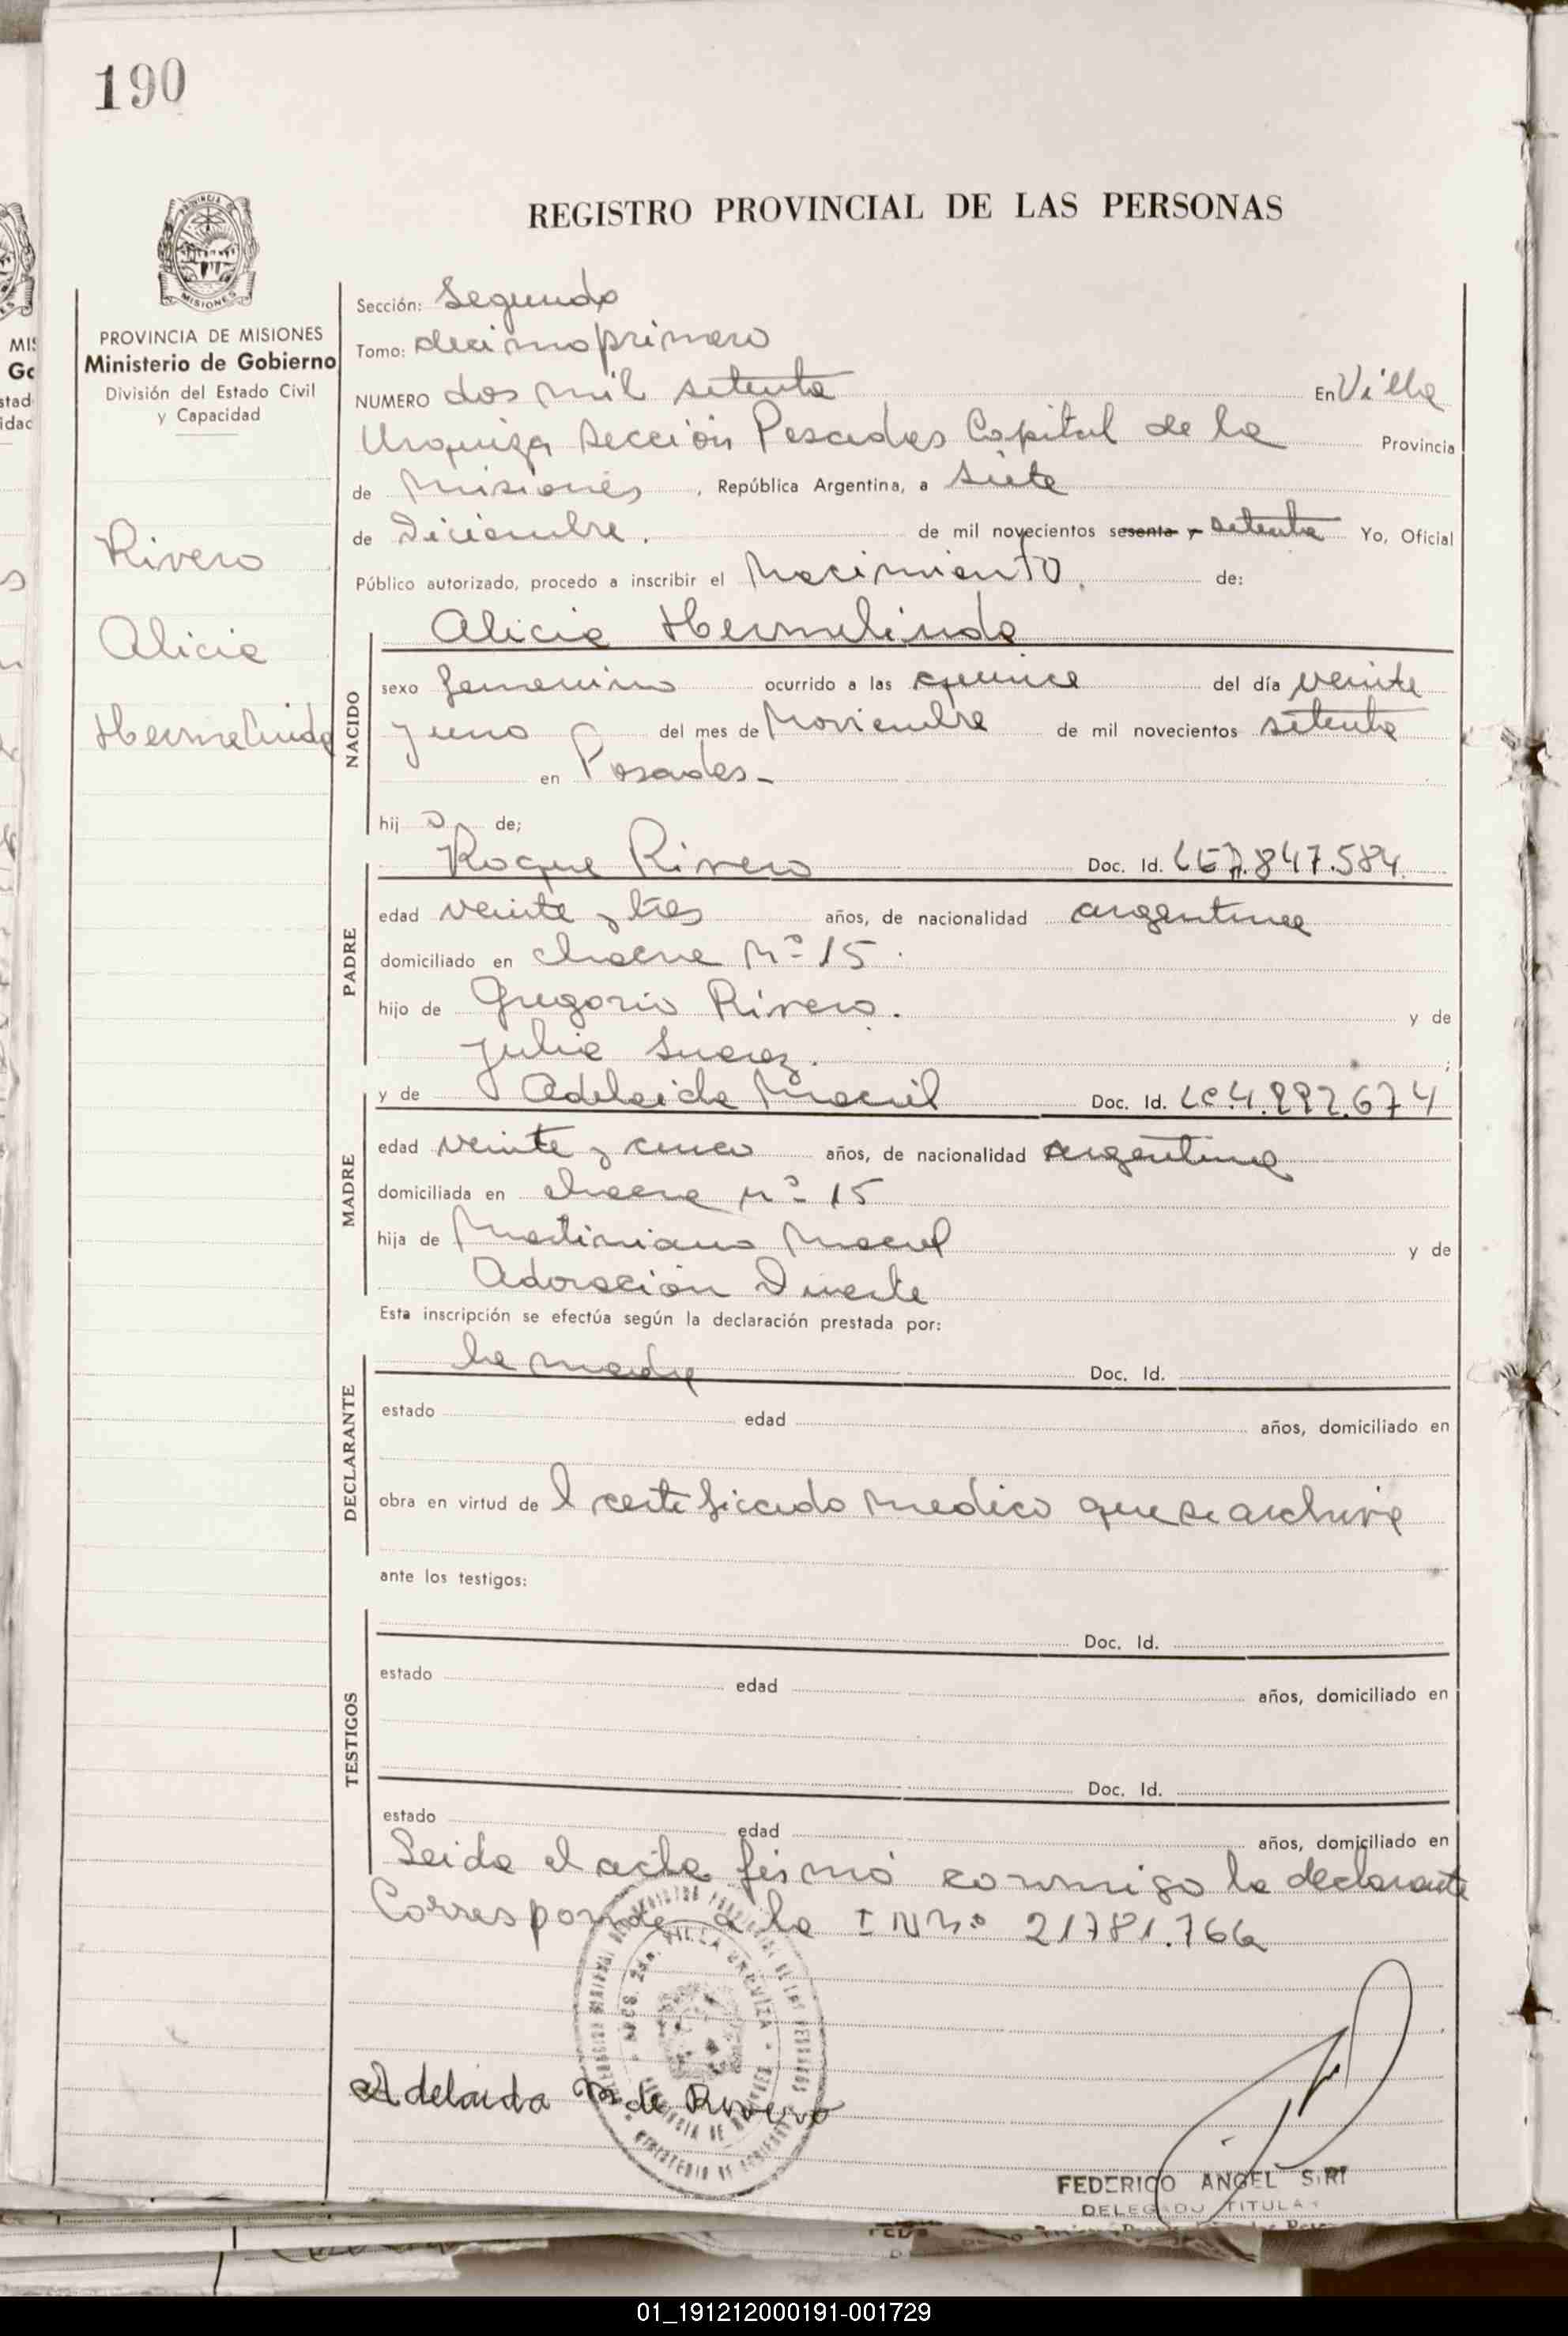 190
REGISTRO PROVINCIAL DE LAS PERSONAS
PROVINCIA DE MISIONES
Ministerio de Gobierno
División del Estado Civil
y Capacidad
Rivero
Alicia
Hermelinda
Sección: Segunda
Tomo: decimoprimero
NUMERO dos mil setenta En Villa
Urquiza Sección Posadas Capital de la Provincia
de Misiones, República Argentina, a siete
de Diciembre. de mil novecientos sesenta y setenta Yo, Oficial
Público autorizado, procedo a inscribir el Nacimiento. de:
NACIDO
Alicia Hermelinda
sexo femenino ocurrido a las quince del día veinte
y uno del mes de Noviembre de mil novecientos setenta
en Posadas-
hij a de;
PADRE
Roque Rivero Doc. Id. LE 7.847.584.
edad veinte y tres años, de nacionalidad argentina
domiciliado en chacra Nº 15.
hijo de Gregorio Rivero. y de
Julia Suarez. ;
MADRE
y de Adelaida Maciel Doc. Id. LC.4.
edad veinte y cinco años, de nacionalidad argentina
domiciliada en chacra nº 15
hija de Martiniano Maciel y de
Adoración Duarte
Esta inscripción se efectúa según la declaración prestada por:
DECLARANTE
la madre Doc. Id.
estado edad años, domiciliado en
obra en virtud de l certificado medico que se archiva
ante los testigos:
TESTIGOS
Doc. Id.
estado edad años, domiciliado en
Doc. Id.
estado edad años, domiciliado en
Leida el acta firmó conmigo la declarante
Corresponde a la I Nº 21781.766
VILLA URQUIZA
Adelaida M de Rivero
FEDERICO ANGEL SIRI
DELEGADO TITULAR
01_191212000191-001729